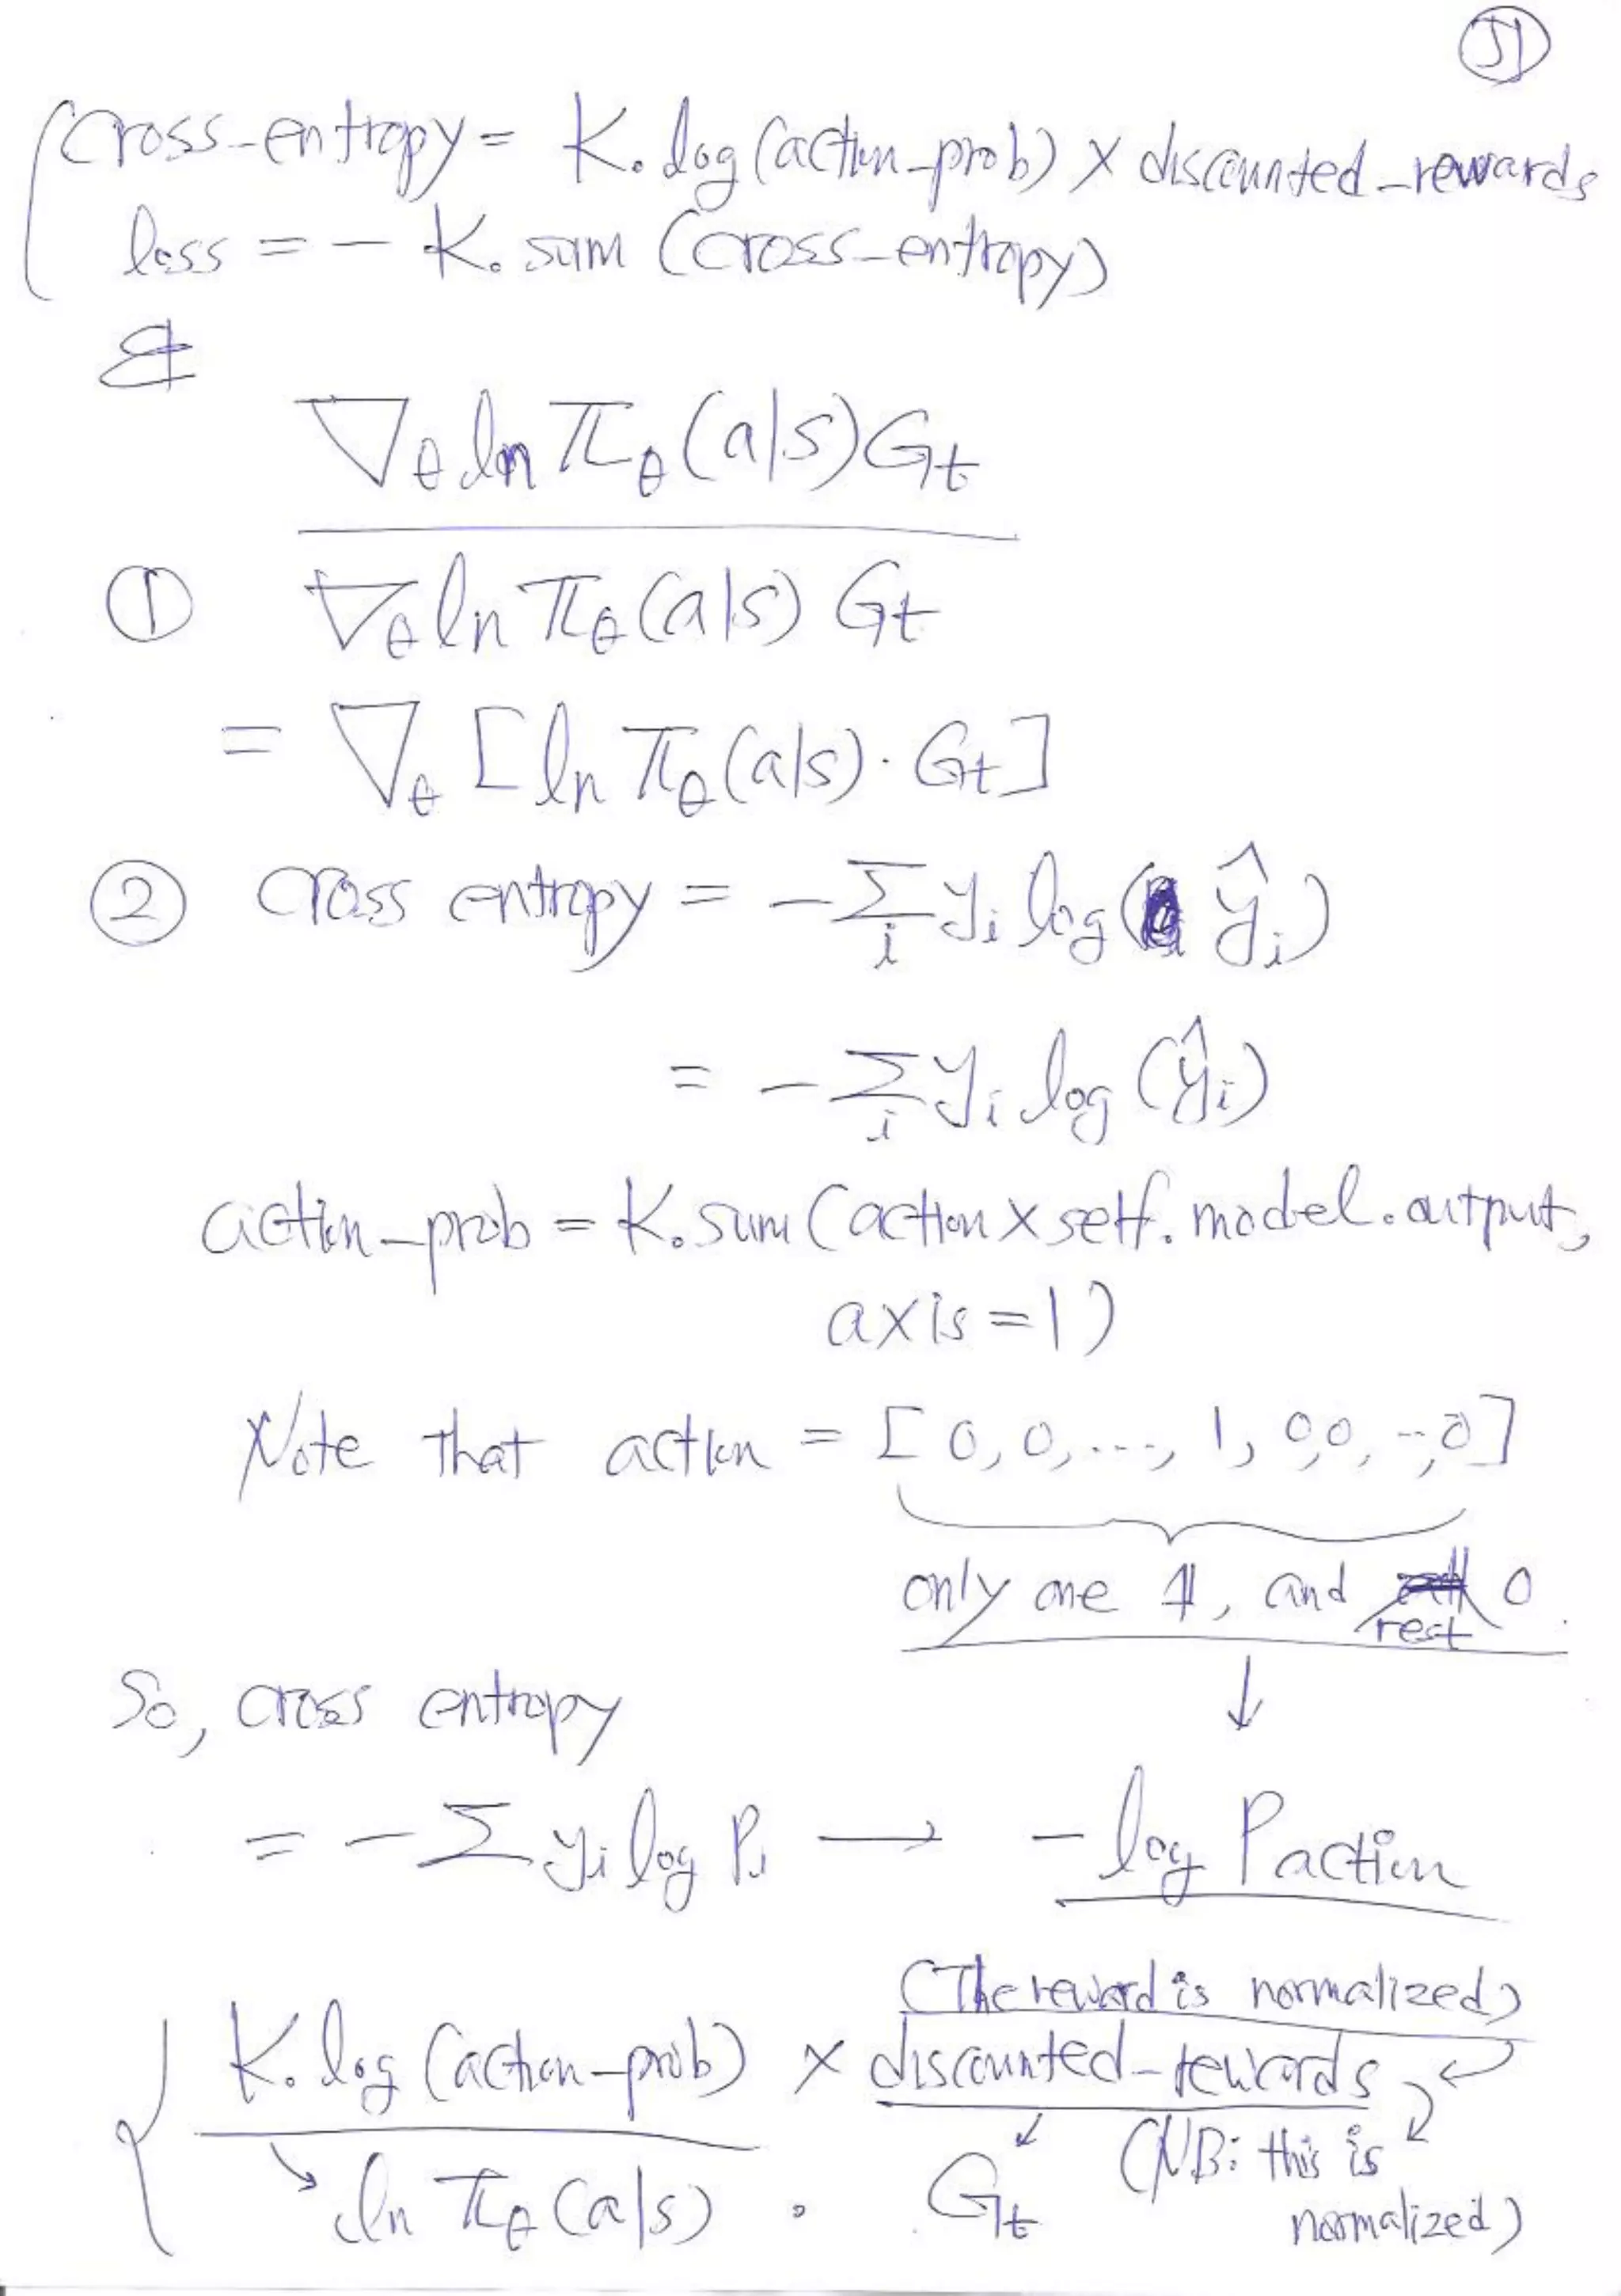 51
cross_entropy = K.log(action_prob) × discounted_rewards
loss = - K.sum (cross_entropy)
&
∇θ ln πθ(a|s)Gt
① ∇θ ln πθ(a|s) Gt
= ∇θ [ln πθ(a|s)·Gt]
② cross entropy = -Σi yi log(ŷi)
= -Σi yi log(ŷi)
action_prob = K.sum(action × self.model.output,
axis=1)
Note that action = [0,0,...,1,0,0,..,0]
only one 1, and rest 0.
So, cross entropy
= -Σ yi log Pi → -log Paction
(The reward is normalized)
K.log(action_prob) × discounted_rewards
(NB: this is
ln πθ(a|s) . Gt
normalized)